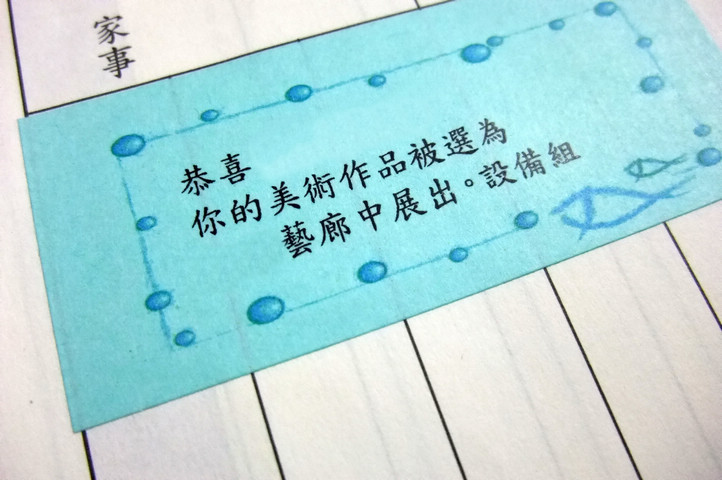 家事
恭喜
你的美術作品被選為
藝廊中展出。設備組